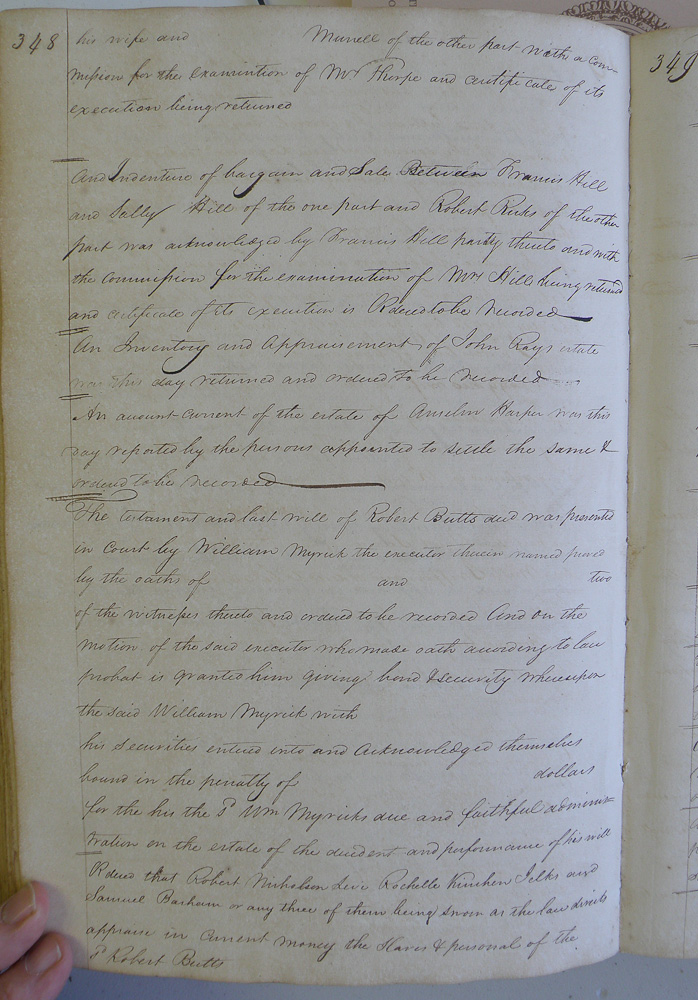 348
his wife and Murrell of the other part with a com-
mission for the examintion of Mrs Thorpe and certificate of its
execution being returned
And Indenture of bargain and Sale Between Francis Hill
and Sally Hill of the one part and Robert Ricks of the other
part was acknowledged by Francis Hill party thereto and with
the commission for the examination of Mrs Hill being returned
and certificate of its execution is Ordered to be recorded
An Inventory and Appraisement of John Rays estate
was this day returned and ordered to be recorded
An account current of the estate of Anselm Harper was this
day reported by the persons appointed to settle the same &
ordered to be recorded
The testament and last will of Robert Butts decd was presented
in Court by William Myrick the executor therein named proved
by the oaths of and two
of the witnesses thereto and ordered to be recorded And on the
motion of the said executor who made oath according to law
probat is granted him giving bond & security whereupon
the said William Myrick with
his securities entered into and acknowledged themselves
bound in the penalty of dollars
for the his the Sd Wm Myricks due and faithful adminis-
tration on the estate of the decedent and performance of his will
Ordered that Robert Nicholson Levi Rochelle Kinchen Jelks and
Samuel Barham or any three of them being sworn as the law directs
appraise in current money the Slaves & personal of the
Sd Robert Butts
349